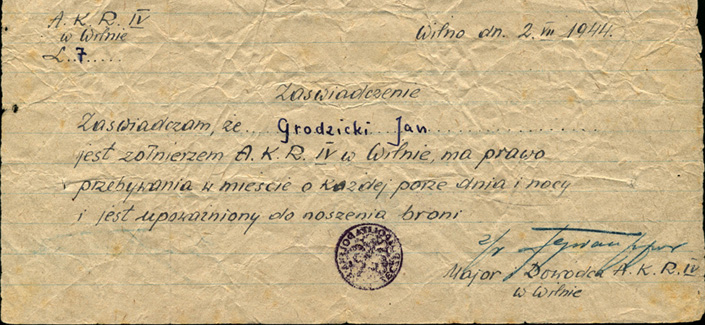 A. K. R. IV
w Wilnie
L. 7.....
Wilno dn. 2. VII 1944.
Zaświadczenie
Zaświadczam, że.... Grodzicki Jan....................
jest żołnierzem A. K. R. IV w Wilnie, ma prawo
przebywania w mieście o każdej porze dnia i nocy
i jest upoważniony do noszenia broni
Major Dowódca A. K. R. IV
w Wilnie